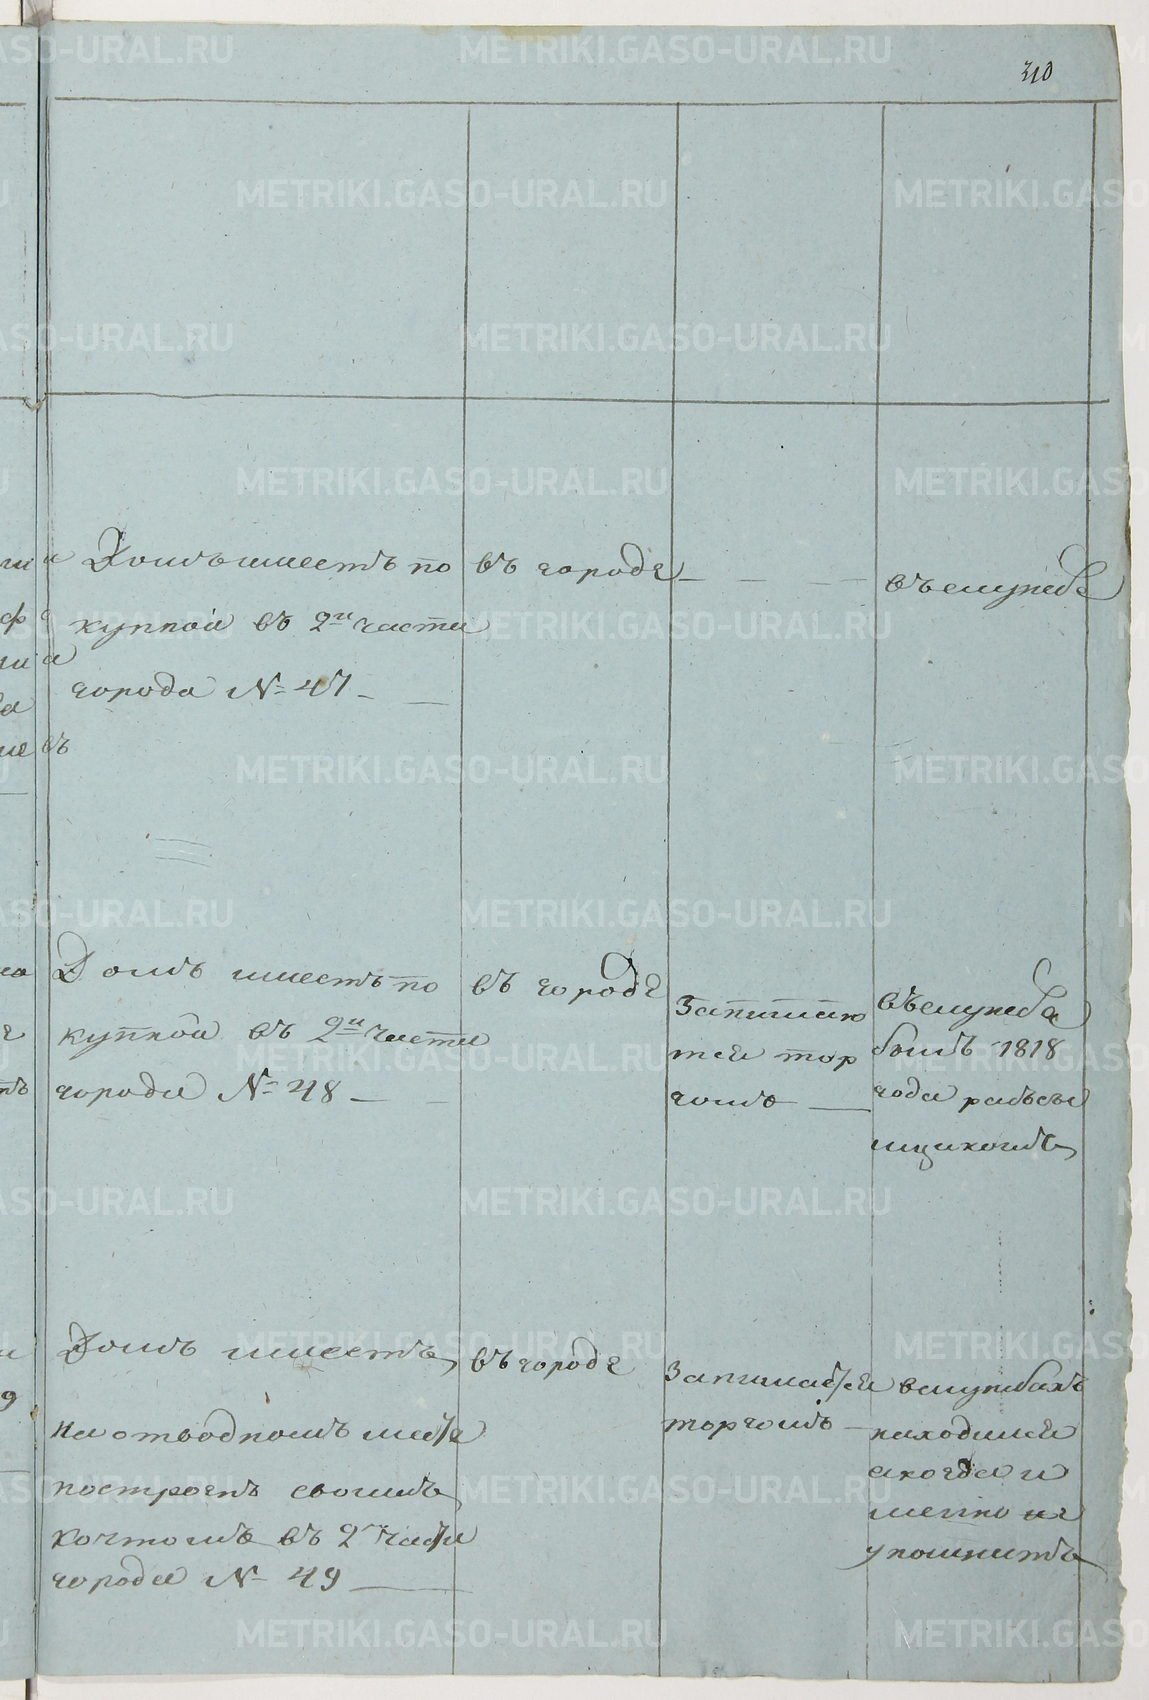 310
Домъ имеетъ по
купной въ 2й части
города №47
въ городе
въ службе
въ
Домъ имеетъ по
купной въ 2й части
города №48
въ городе
Занимаю
тся тор
гомъ
въ службе
былъ 1818
года
щикомъ
Домъ имеетъ
на отводномъ месте
построенъ своимъ
коштомъ въ 2й части
города № 49
въ городе
Занимается
торгомъ
в службахъ
находился
а когда и
менно не
упомнитъ
METRIKI.GASO-URAL.RU